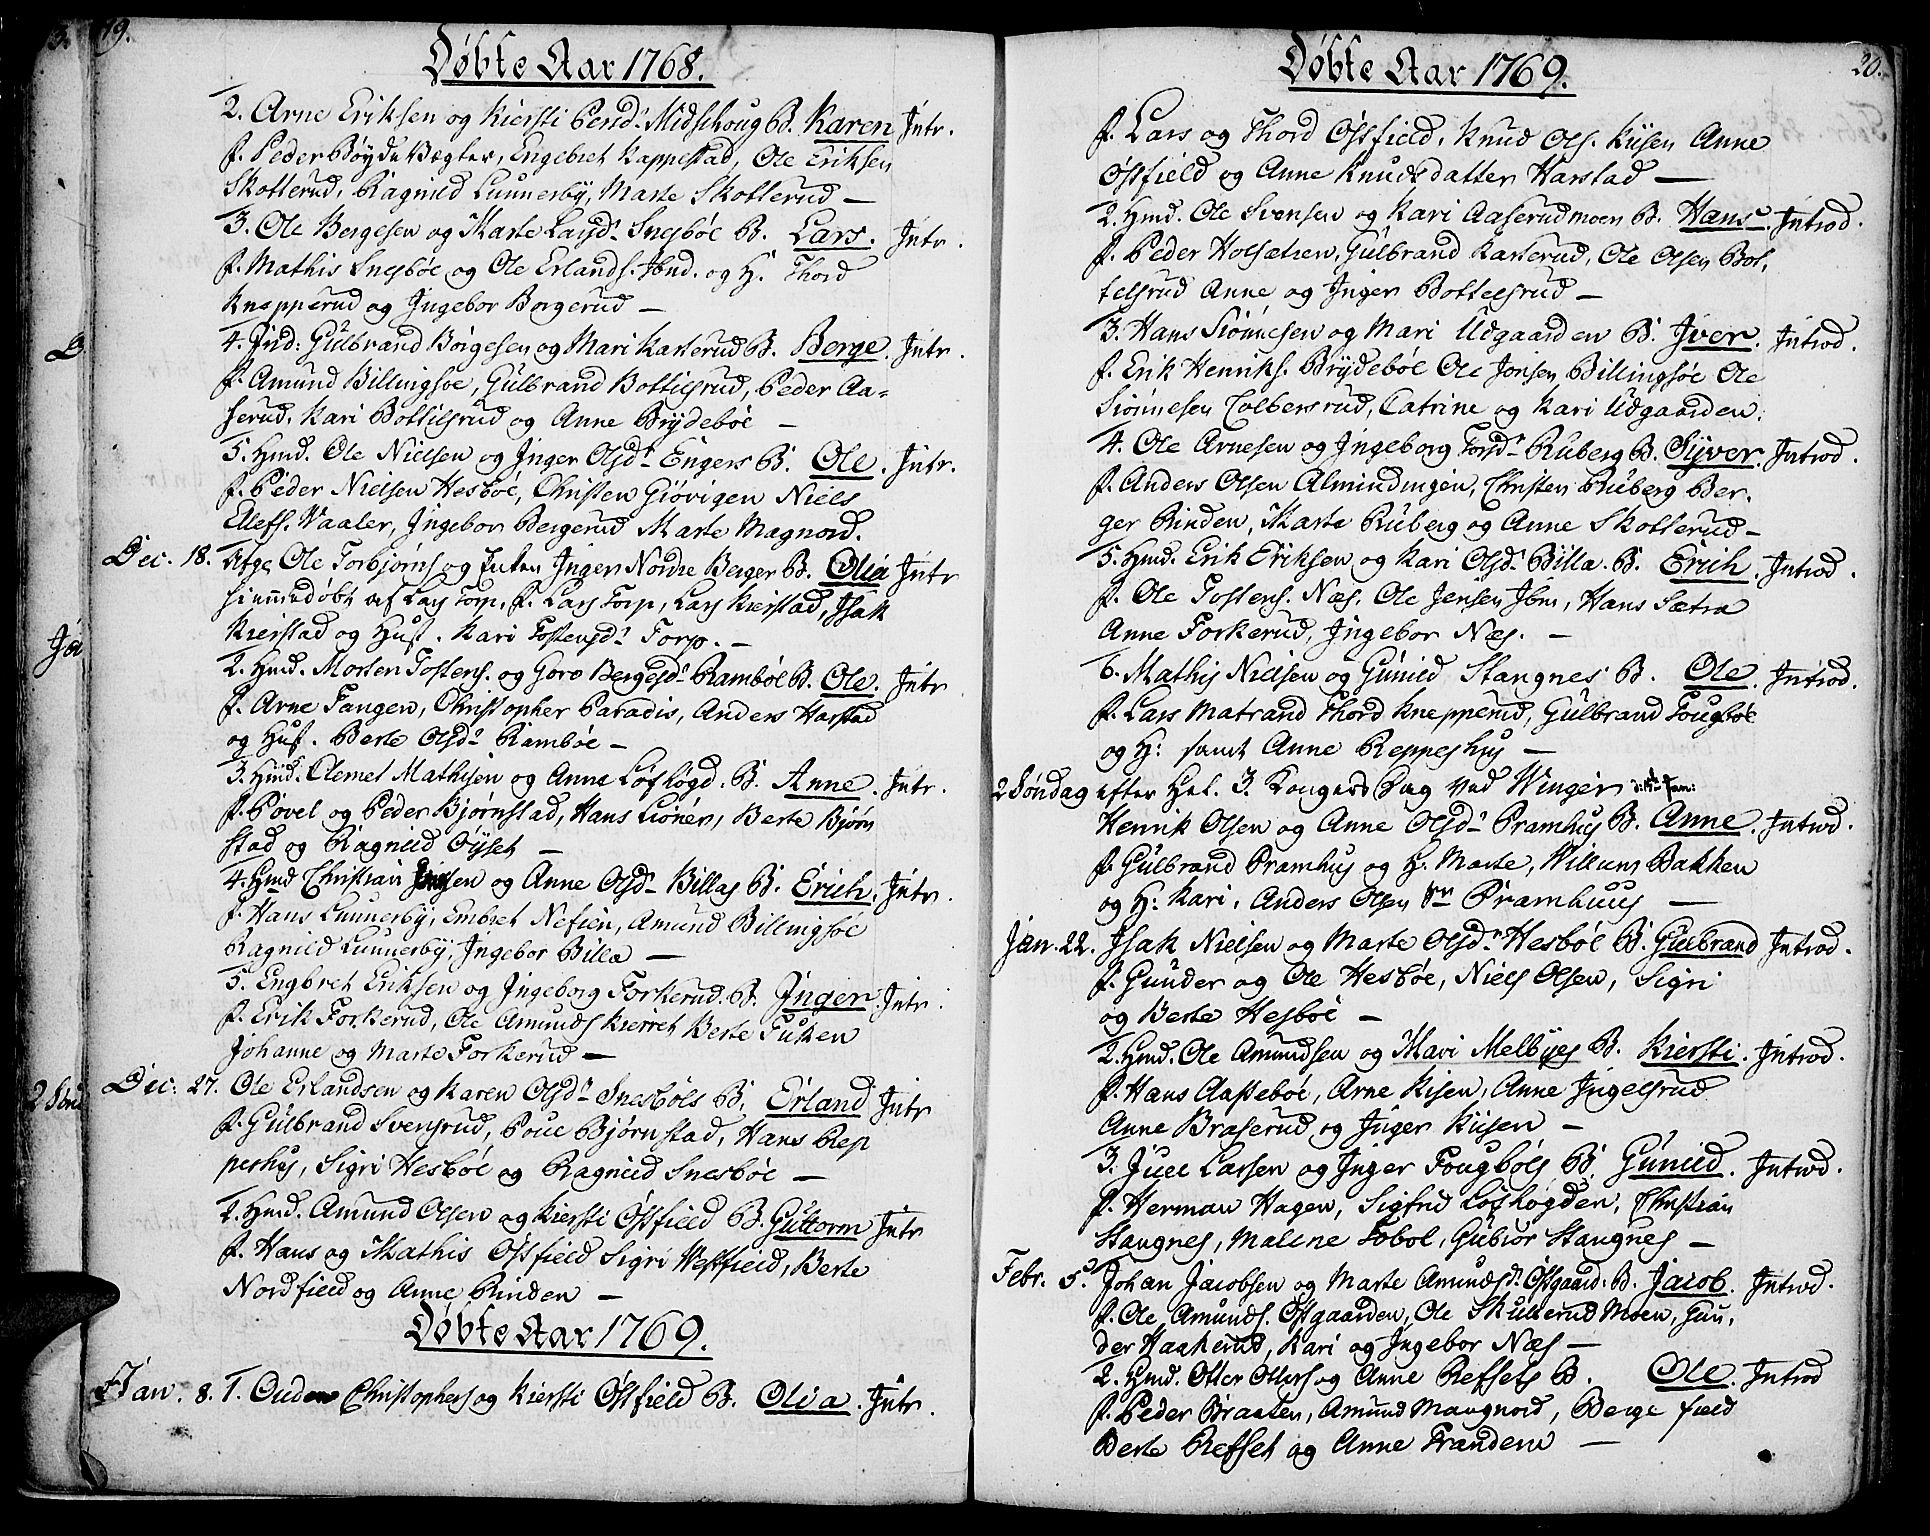 19.
Døbte Aar 1768.
2. Arne Eriksen og Kiersti Persd. Midschoug B. Karen Intr.
f. Peder Bøyde Vægter, Engebret Kappestad, Ole Eriksen
Skotterud, Ragnild Lunnerby, Marte Skotterud —
3. Ole Bergesen og Marte Larsd. Snesbøe B. Lars. Intr.
f. Mathis Snesbøe og Ole Erlands. Ibnd. og H. Thord
Knepperud og Ingebor Bergerud —
4. Ind: Gulbrand Børgesen og Mari Kasterud B. Berge. Intr.
f. Amund Billingsøe, Gulbrand Bottilsrud, Peder Aa-
serud, Kari Bottilsrud og Anne Brydebøe —
5. Hmd. Ole Nielsen og Inger Olsd. Engers B. Ole. Intr.
f. Peder Nielsen Hesbøe, Christen Giøvigen Niels
Elefs. Vaaler, Ingebor Bergerud Marte Magnord.
Dec. 18. Afgs Ole Torbjørns og Enken Inger Nordre Berger B. Olia Intr
hiemmedøbt af Lars Torp, f. Lars Torp, Lars Kierstad, Isak
Kierstad og Hust. Kari Tostensd. Torp. —
2. Hmd. Morten Tostens. og Goro Bergesd. Rambøl B. Ole. Intr
f. Arne Fangen, Christopher Paradis, Anders Harstad
og Hust. Berte Olsd. Rambøe —
3. Hmd. Clemet Mathisen og Anne Løfhøgd. B. Anne. Intr.
f. Povel og Peder Bjørnstad, Hans Lionen, Berte Bjørn
stad og Ragnild Øyset —
4. Hmd Christian Jensen og Anne Olsd. Billas B. Erich. Intr.
f. Hans Lunnerby, Embret Nefien, Amund Billingsøe
Ragnild Lunnerby, Ingebor Billa —
5. Engbret Eriksen og Ingeborg Forkerud. B. Inger. Intr.
f. Erik Forkerud, Ole Amunds Kierret Berte Tuken
Johanne og Marte Forkerud —
Dec: 27. Ole Erlandsen og Karen Olsd. Snesbøls B. Erland Intr
f. Gulbrand Svensrud, Poue Bjørnstad, Hans Rep
peshus, Sigri Hesbøe og Ragnild Snesbøe —
2. Hmd. Amund Olsen og Kiersti Østfield B. Guttorm Intr
f. Hans og Mathis Østfield Sigri Vestfield, Berte
Nordfield og Anne Rinden —
Døbte Aar 1769.
Jan. 8. 1. Ouden Christophers og Kiersti Østfield B. Olia. Intr.
20.
Døbte Aar 1769.
f. Lars og Thord Østfield, Knud Ols. Kiisen Anne
Østfield og Anne Knudsdatter Harstad —
2. Hmd. Ole Svensen og Kari Aaserudmoen B. Hans. Introd.
f. Peder Holsætren, Gulbrand Kasterud, Ole Olsen Bot,
telsrud Anne og Inger Bottelsrud —
3. Hans Siønnesen og Mari Udgaarden B. Iver. Introd.
f. Erik Henriks. Brydebøe Ole Jonsen Billingsøe Ole
Siønnesen Tolbersrud, Catrine og Kari Udgaarden.
4. Ole Arnesen og Ingeborg Torsd. Ruberg B. Syver. Introd.
f. Anders Olsen Almindingen, Christen Ruberg Ber.
ger Rinden, Marte Ruberg og Anne Skotterud —
5. Hmd. Erik Eriksen og Kari Olsd. Billa. B. Erich. Introd.
f. Ole Tostens. Næs. Ole Jensen Ibm, Hans Sætra
Anne Forkerud, Ingebor Næs. —
6. Mathis Nielsen og Gunild Stangnes B. Ole. Introd.
f. Lars Matrand Thord Knepperud, Gulbrand Tougbøe
og H: samt Anne Reppeshus —
2 Søndag efter Hel. 3. Kongers Dag ved Winger
Henrik Olsen og Anne Olsd. Pramhus B. Anne. Introd.
f. Gulbrand Pramhus og H. Marte, Willum Bakken
og H: Kari, Anders Olsen Pramhuus —
Jan. 22. Isak Nielsen og Marte Olsd. Hesbøl B. Gulbrand Introd.
f. Gunder og Ole Hesbøe, Niels Olsen, Sigri
og Berte Hesbøe —
2. Hmd. Ole Amundsen og Mari Melbyes B. Kiersti. Introd.
f. Hans Aassebøe, Arne Kisen, Anne Ingelsrud
Anne Braserud og Inger Kiisen —
3. Juel Larsen og Inger Tougbøls B. Gunild. Introd.
f. Herman Hagen, Sigfrid Løfhøgden, Christian
Stangnes, Malene Tobol, Gubiør Stangnes —
Febr. 5. Johan Jacobsen og Marte Amundsd. Østgaard. B. Jacob. Introd.
f. Ole Amunds. Østgaarden, Ole Skullerud Moen, Gun,
der Haakerud, Kari og Ingebor Næs —
2. Hmd. Otter Otters og Anne Refsets B. Ole. Introd
f. Peder Braaten, Amund Maugnord, Berge field
Berte Refset og Anne Tranden —